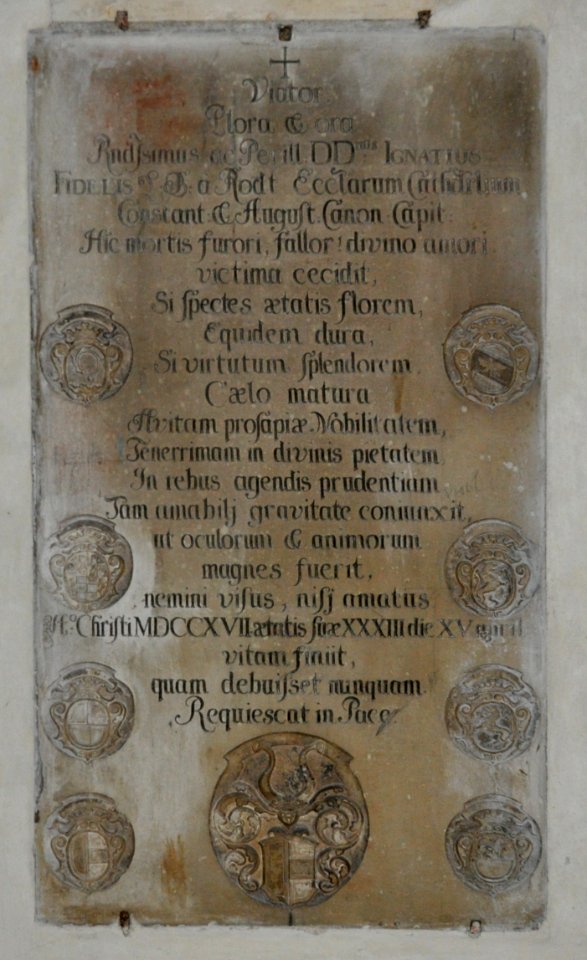 Viator
Plora & ora
Rndſsimus ac Perill. DDnus IGNATIUS
FIDELIS S. B. a Rodt Eccl̃arum Cathedralium
Constant. & August. Canon. Capit.
Hic mortis furori, fallor! divino amori
victima cecidit,
Si ſpectes ætatis florem,
Equidem dura,
Si virtutum ſplendorem
Cælo matura
Avitam proſapiæ Nobilitatem,
Tenerrimam in divinis pietatem
In rebus agendis prudentiam
Tam amabilj gravitate coniunxit,
ut oculorum & animorum
magnes fuerit,
nemini viſus, niſj amatus
Ao. Chriſti MDCCXVII ætatis ſuæ XXXIII die XV April
vitam finiit,
quam debuiſset nunquam
Requiescat in Pace